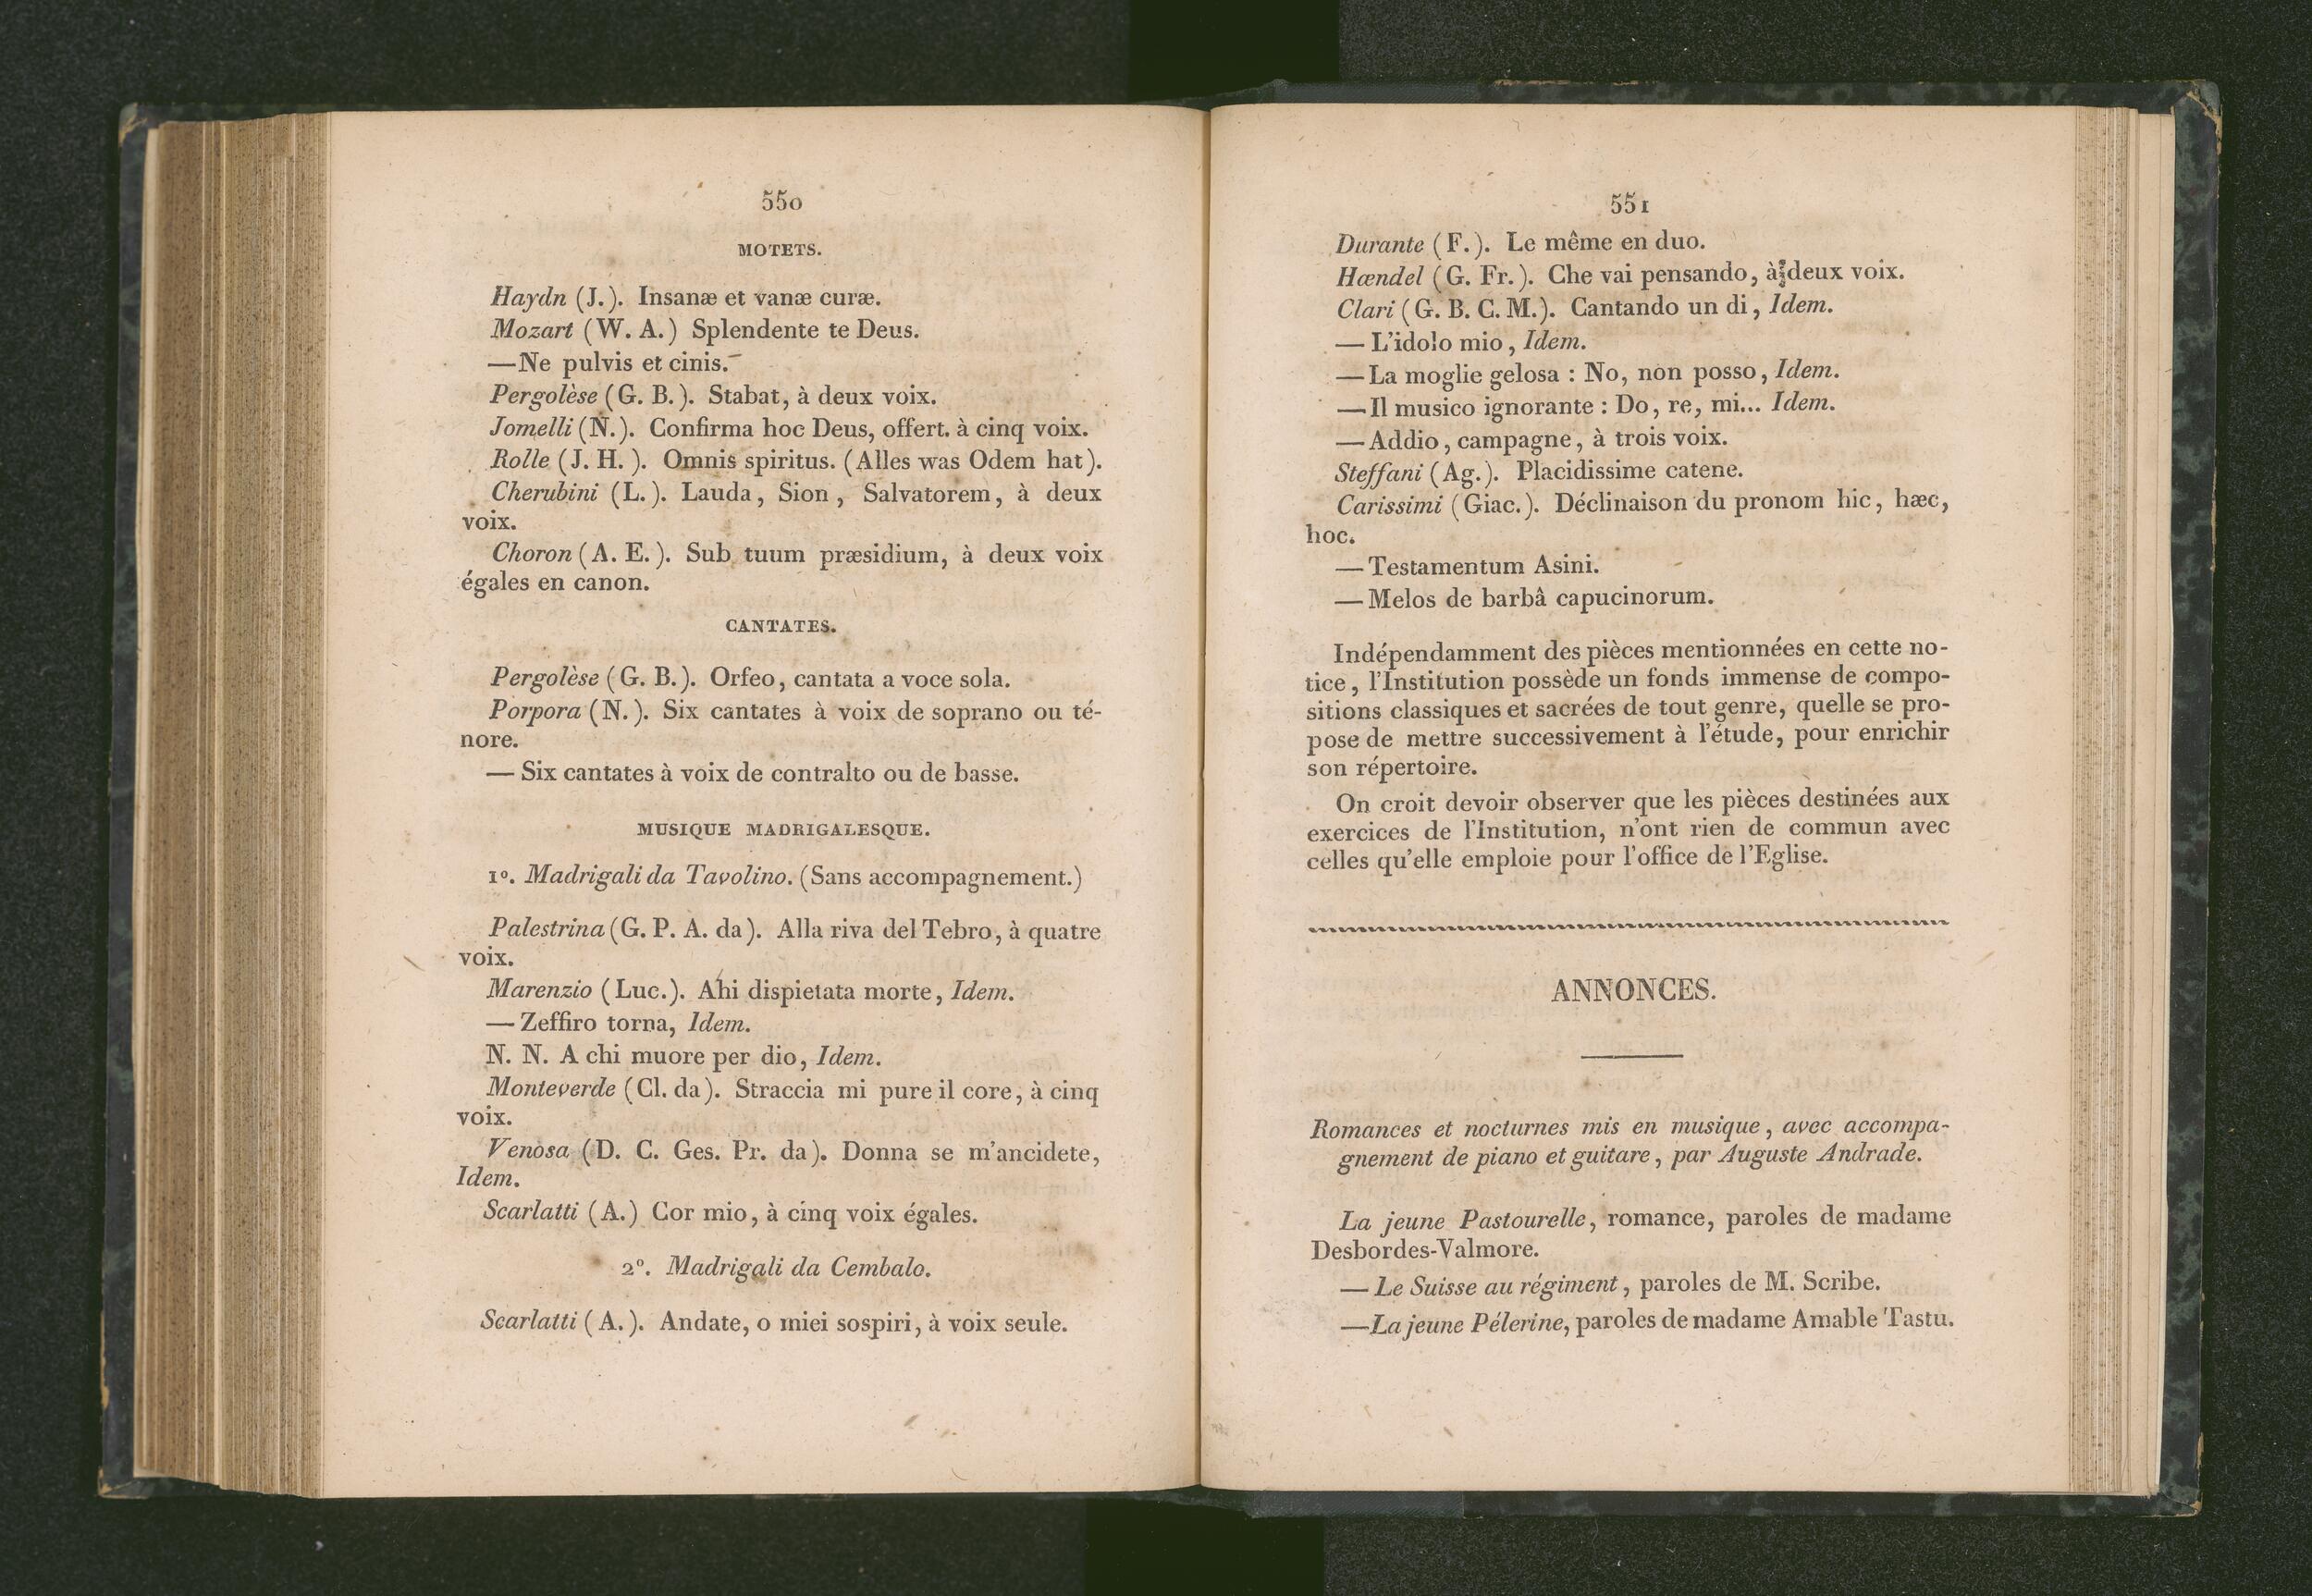 550
MOTETS.
Haydn (J.). Insanæ et vanæ curæ.
Mozart (W. A.) Splendente te Deus.
—Ne pulvis et cinis.
Pergolèse (G. B.). Stabat, à deux voix.
Jomelli (N.). Confirma hoc Deus, offert. à cinq voix.
Rolle (J. H.). Omnis spiritus. (Alles was Odem hat).
Cherubini (L.). Lauda, Sion, Salvatorem, à deux
voix.
Choron (A. E.). Sub tuum præsidium, à deux voix
égales en canon.
CANTATES.
Pergolèse (G. B.). Orfeo, cantata a voce sola.
Porpora (N.). Six cantates à voix de soprano ou té-
nore.
— Six cantates à voix de contralto ou de basse.
MUSIQUE MADRIGALESQUE.
1º. Madrigali da Tavolino. (Sans accompagnement.)
Palestrina (G. P. A. da). Alla riva del Tebro, à quatre
voix.
Marenzio (Luc.). Ahi dispietata morte, Idem.
— Zeffiro torna, Idem.
N. N. A chi muore per dio, Idem.
Monteverde (Cl. da). Straccia mi pure il core, à cinq
voix.
Venosa (D. C. Ges. Pr. da). Donna se m'ancidete,
Idem.
Scarlatti (A.) Cor mio, à cinq voix égales.
2º. Madrigali da Cembalo.
Scarlatti (A.). Andate, o miei sospiri, à voix seule.
551
Durante (F.). Le même en duo.
Hœndel (G. Fr.). Che vai pensando, à deux voix.
Clari (G. B. C. M.). Cantando un di, Idem.
— L'idolo mio, Idem.
— La moglie gelosa : No, non posso, Idem.
— Il musico ignorante : Do, re, mi... Idem.
— Addio, campagne, à trois voix.
Steffani (Ag.). Placidissime catene.
Carissimi (Giac.). Déclinaison du pronom hic, hæc,
hoc.
— Testamentum Asini.
— Melos de barbâ capucinorum.
Indépendamment des pièces mentionnées en cette no-
tice, l'Institution possède un fonds immense de compo-
sitions classiques et sacrées de tout genre, quelle se pro-
pose de mettre successivement à l'étude, pour enrichir
son répertoire.
On croit devoir observer que les pièces destinées aux
exercices de l'Institution, n'ont rien de commun avec
celles qu'elle emploie pour l'office de l'Eglise.
ANNONCES.
Romances et nocturnes mis en musique, avec accompa-
gnement de piano et guitare, par Auguste Andrade.
La jeune Pastourelle, romance, paroles de madame
Desbordes-Valmore.
— Le Suisse au régiment, paroles de M. Scribe.
— La jeune Pélerine, paroles de madame Amable Tastu.